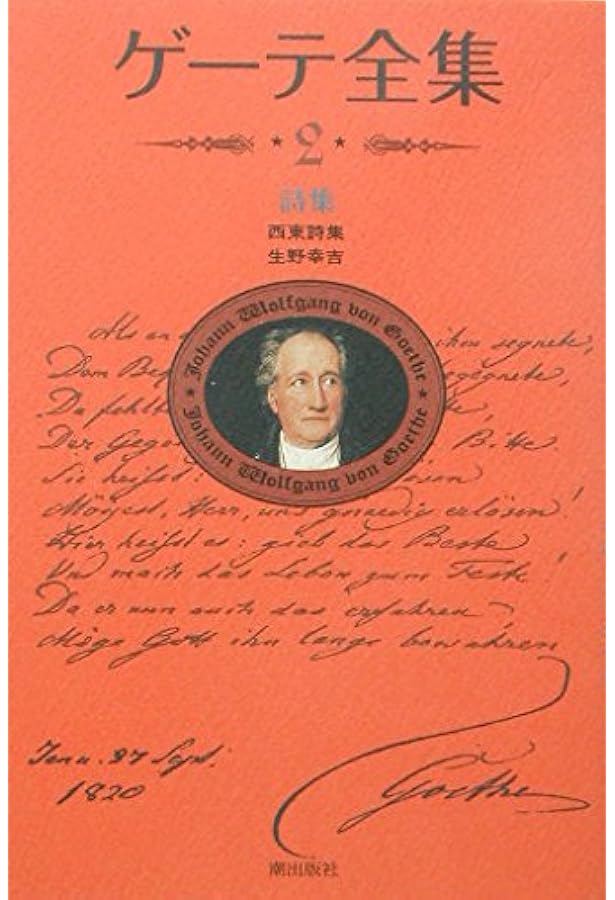 ゲーテ全集
2
詩集
西東詩集
生野幸吉
Johann Wolfgang von Goethe
Johann Wolfgang von Goethe
Als an ihm segnete,
Dem gegnete,
Da fehlt
Der Bitte.
Sie heisst:
Mögest, Herr, uns gnaedig erlösen!
Hier heisst es: gieb das Beste
Uns mach das Leben zum Feste!
Da er nun auch das erfahren
Möge Gott ihn lange bewahren
Jena. 27 Sept.
1820
Goethe
潮出版社